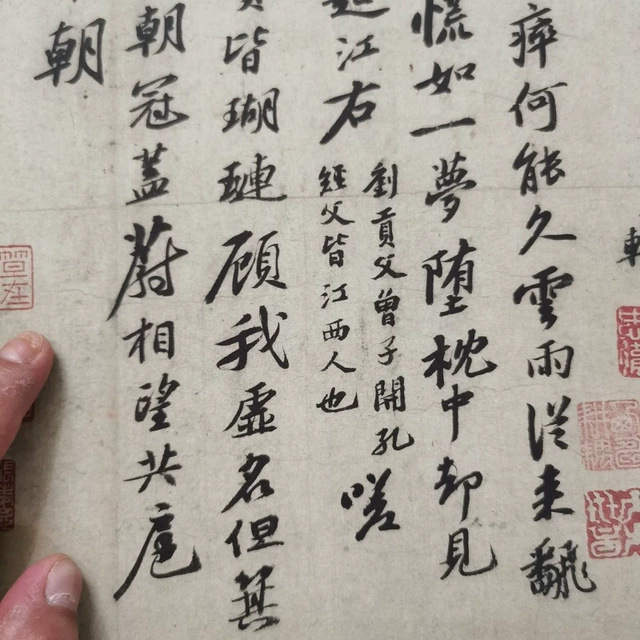 軾
瘁何能久雲雨從来飜
慌如一夢堕枕中却見
江右
劉貢父曾子開孔
經父皆江西人也
嗟
皆瑚璉顧我虛名但箕
朝冠蓋蔚相望共扈
朝